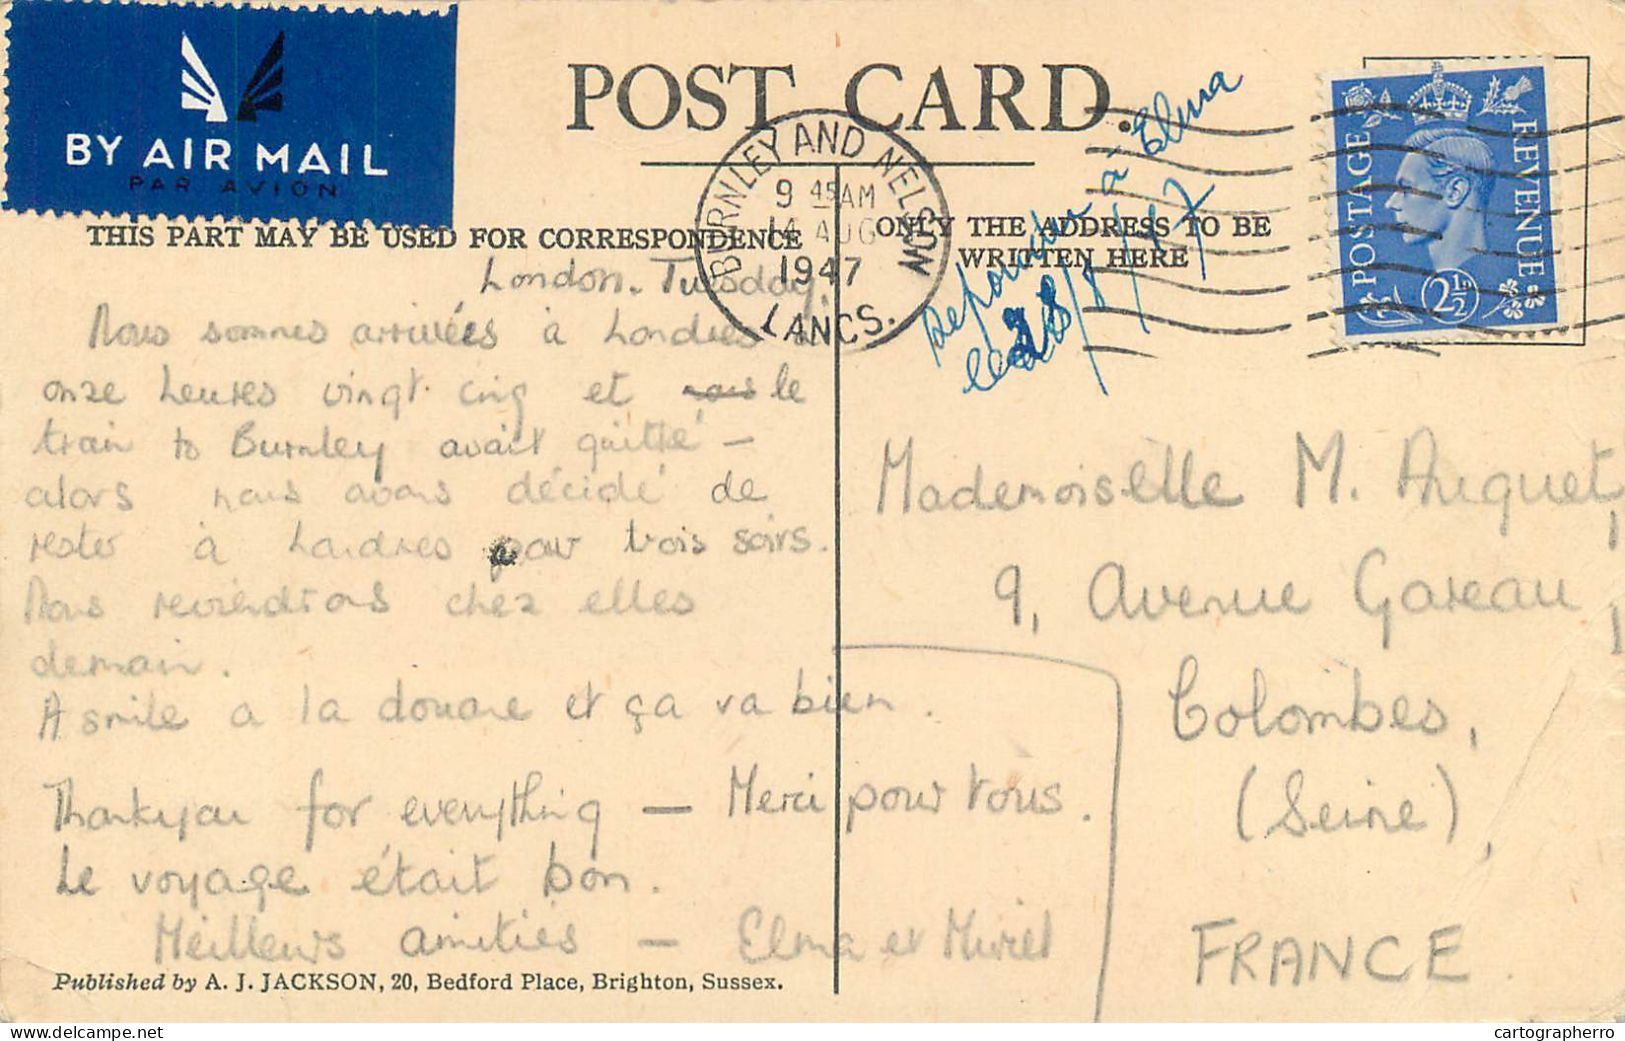 BY AIR MAIL
PAR AVION
POST CARD.
BURNLEY AND NELSON
9 45 AM
14 AUG
1947
LANCS.
POSTAGE REVENUE
2½
THIS PART MAY BE USED FOR CORRESPONDENCE
ONLY THE ADDRESS TO BE
WRITTEN HERE
à Elma
28/8/47
London. Tuesday.
Nous sommes arrivées à Londres à
onze heures vingt cinq et nous le
train to Burnley avait quitté —
alors nous avons décidé de
rester à Londres pour trois soirs.
Nous reviendrons chez elles
demain.
A smile a la douane et ça va bien.
Thankyou for everything — Merci pour tous.
Le voyage était bon.
Meilleurs amitiés — Elma et Muriel
Mademoiselle M. Auquet,
9, Avenue Gareau,
Colombes,
(Seine),
FRANCE.
Published by A. J. JACKSON, 20, Bedford Place, Brighton, Sussex.
cartographerro